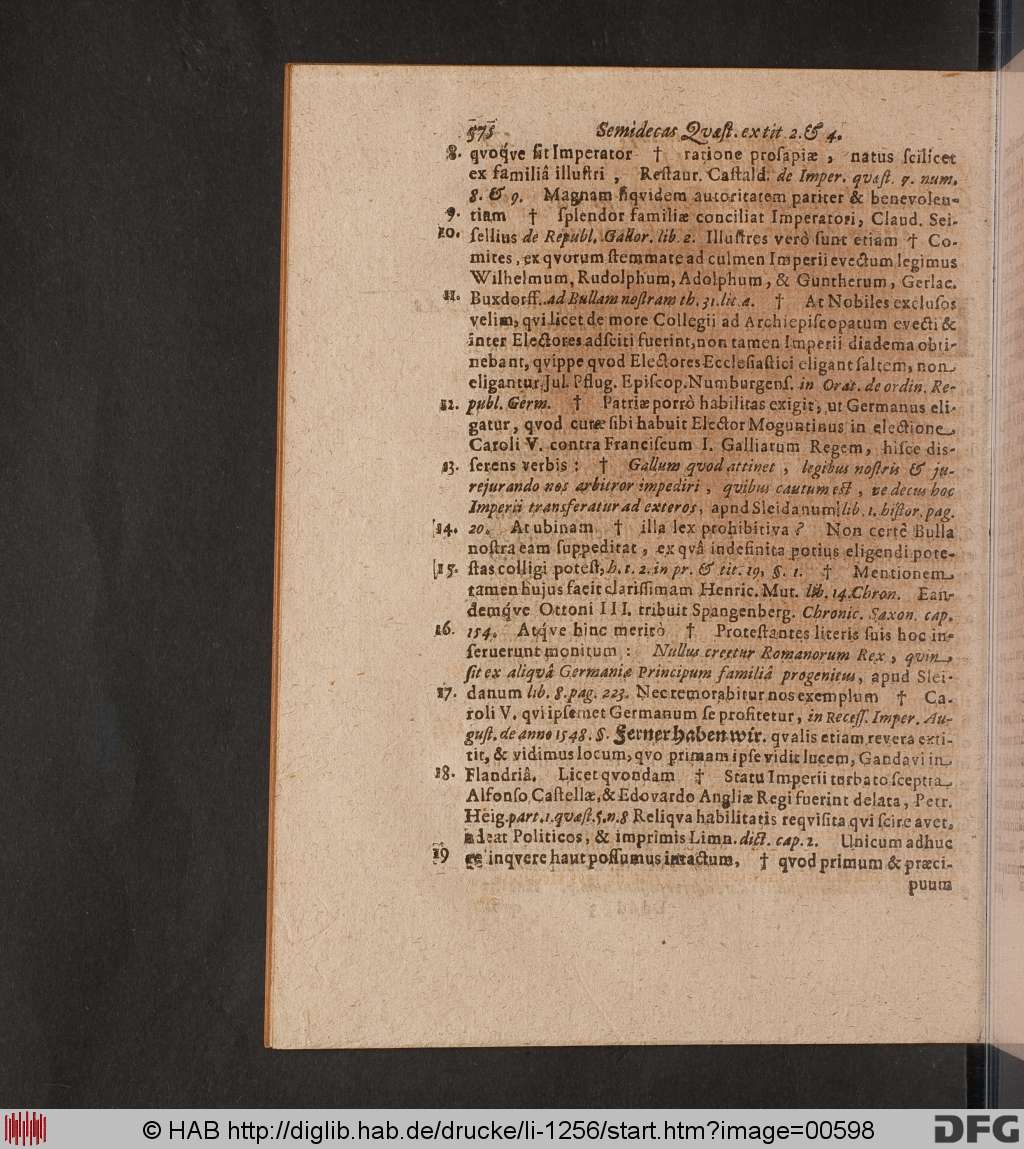 575 Semidecas Qvæſt. ex tit 2. & 4.
8. qvoq́ve ſit Imperator † ratione proſapiæ, natus ſcilicet
ex familiâ illuſtri, Reſtaur. Caſtald. de Imper. quæſt. 7. num.
8. & 9. Magnam ſiqvidem autoritatem pariter & benevolen-
9. tiam † ſplendor familiæ conciliat Imperatori, Claud. Sei-
10. ſellius de Republ. Gallor. lib. 2. Illuſtres verò ſunt etiam † Co-
mites, ex qvorum ſtemmate ad culmen Imperii evectum legimus
Wilhelmum, Rudolphum, Adolphum, & Guntherum, Gerlac.
11. Buxdorff. ad Bullam noſtram th. 31. lit. a. † At Nobiles excluſos
velim, qvi licet de more Collegii ad Archiepiſcopatum evecti &
inter Electores adſciti fuerint, non tamen Imperii diadema obti-
nebant, qvippe qvod Electores Eccleſiaſtici eligant ſaltem, non
eligantur, Jul. Pflug. Epiſcop. Numburgenſ. in Orat. de ordin. Re-
12. publ. Germ. † Patriæ porrò habilitas exigit, ut Germanus eli-
gatur, qvod curæ ſibi habuit Elector Moguntinus in electione
Caroli V. contra Franciſcum I. Galliarum Regem, hiſce dis-
13. ſerens verbis: † Gallum quod attinet, legibus noſtris & ju-
rejurando nos arbitror impediri, quibus cautum eſt, ne decus hoc
Imperii transferatur ad exteros, apud Sleidanum lib. 1. hiſtor. pag.
14. 20. At ubinam † illa lex prohibitiva? Non certè Bulla
noſtra eam ſuppeditat, ex qvâ indefinita potius eligendi pote-
15. ſtas colligi poteſt, h. t. 2. in pr. & tit. 19, §. 1. † Mentionem
tamen hujus facit clariſſimam Henric. Mut. lib. 14. Chron. Ean-
demq́ve Ottoni III. tribuit Spangenberg. Chronic. Saxon. cap.
16. 154. Atq́ve hinc meritò † Proteſtantes literis ſuis hoc in-
ſeruerunt monitum: Nullus creetur Romanorum Rex, quin
ſit ex aliquâ Germaniæ Principum familiâ progenitus, apud Slei-
17. danum lib. 8. pag. 223. Nec remorabitur nos exemplum † Ca-
roli V. qvi ipſemet Germanum ſe profitetur, in Receſſ. Imper. Au-
guſt. de anno 1548. §. Ferner haben wir. qvalis etiam revera exti-
tit, & vidimus locum, qvo primam ipſe vidit lucem, Gandavi in
18. Flandriâ. Licet qvondam † Statu Imperii turbato ſceptra
Alfonſo Caſtellæ, & Edovardo Angliæ Regi fuerint delata, Petr.
Heig. part. 1. quæſt. 5. n. 8 Reliqva habilitatis reqviſita qvi ſcire avet,
adeat Politicos, & imprimis Limn. dict. cap. 2. Unicum adhuc
19 relinqvere haut poſſumus intactum, † qvod primum & præci-
puum
© HAB http://diglib.hab.de/drucke/li-1256/start.htm?image=00598
DFG